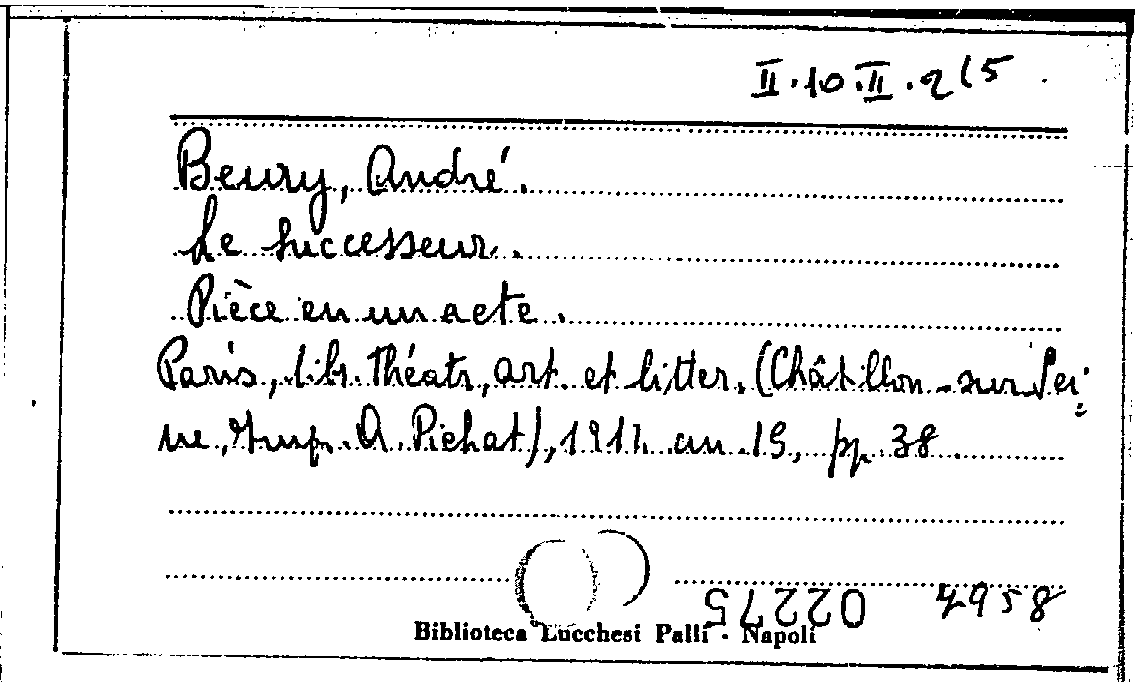 II.10.II.2(5
Beury, André.
Le successeur.
Pièce en un acte.
Paris, libr. théatr., art. et litter. (Châtillon-sur Sei=
ne, Imp. A. Pichat), 1911. cm. 19, pp. 38
02275 4958
Biblioteca Lucchesi Palli - Napoli